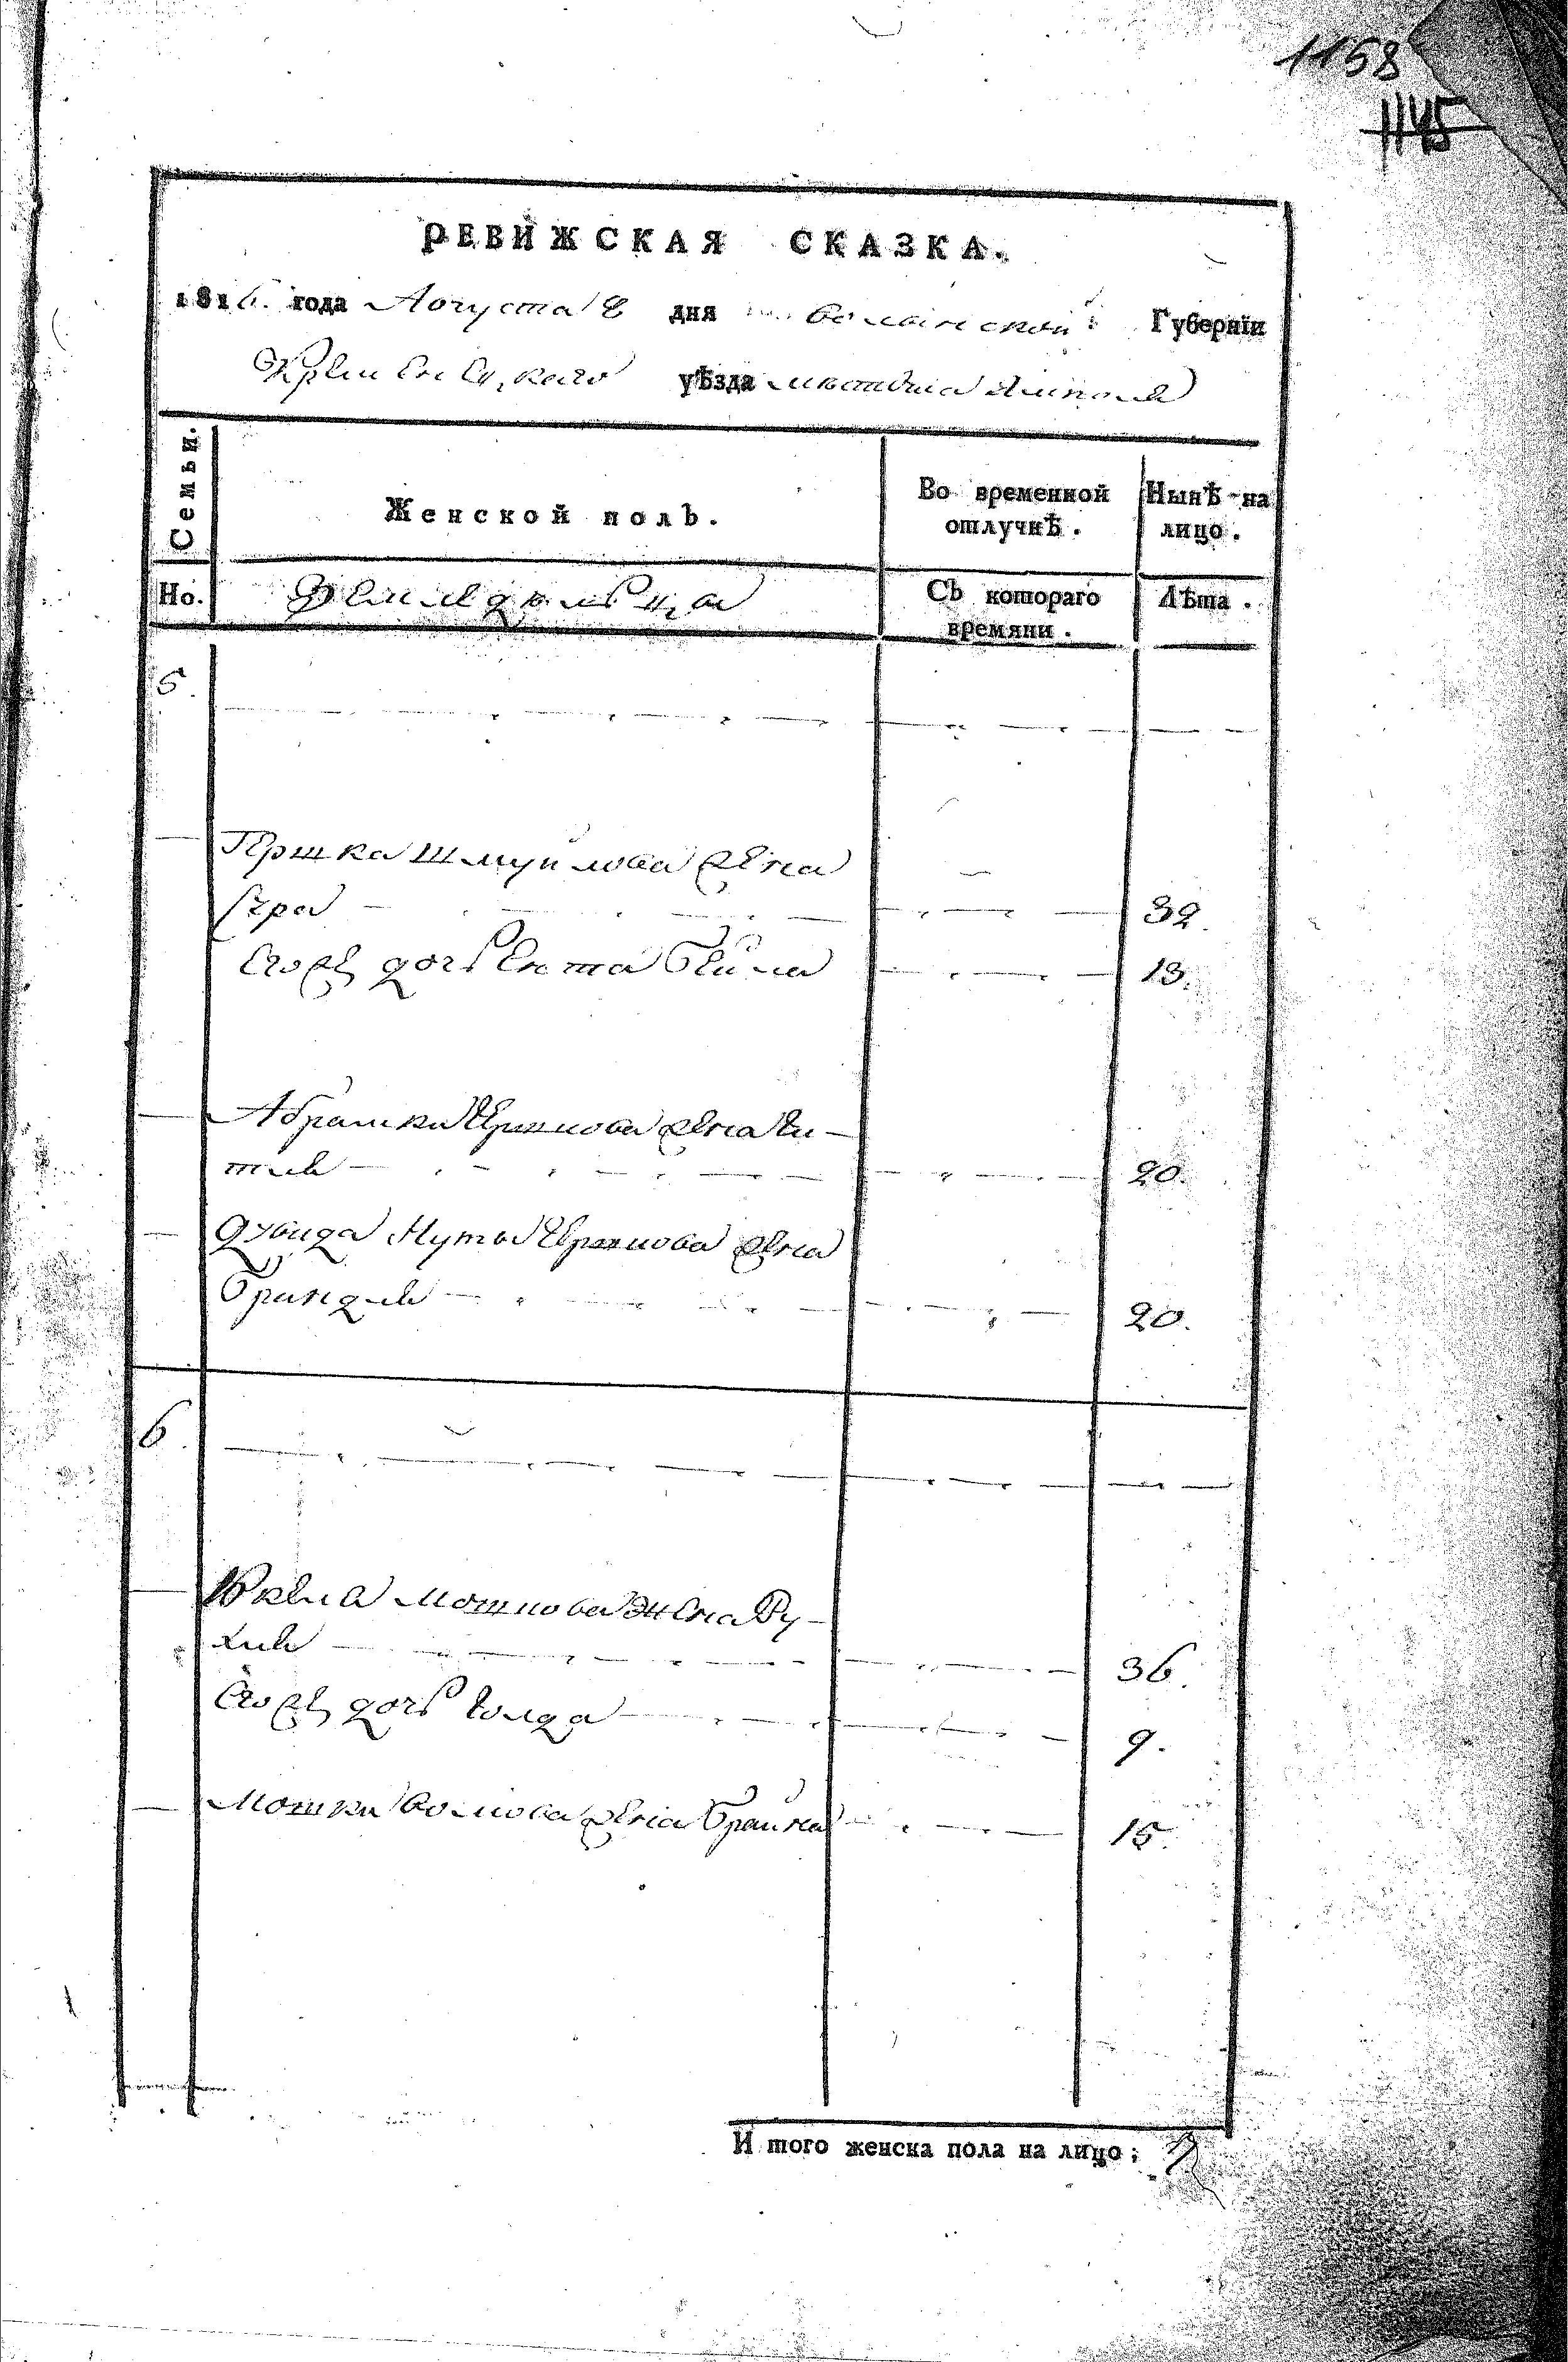 1158
1145
РЕВИЖСКАЯ СКАЗКА.
1816. года Августа 8 дня Волынской Губернїи
Кременецкаго уѣзда местечка Ямполя
Семьи.
Женской полъ.
Во временной отлучкѣ.
Нынѣ на лицо.
Но.
Земледельца
Съ котораго времяни.
Лѣта.
5.
Гершка Шмуйлова жена
Сура 32.
Его же дочь Ента Бейла 13.
Абрашки Гершкова жена Ги-
тля 20.
Дувида Нуты Гершкова жена
Бриндля 20.
6.
Мошкова жена Ру-
хля 36.
Его же дочь Голда 9.
Мошки Волкова жена Брайна 15.
И того женска пола на лицо: 7